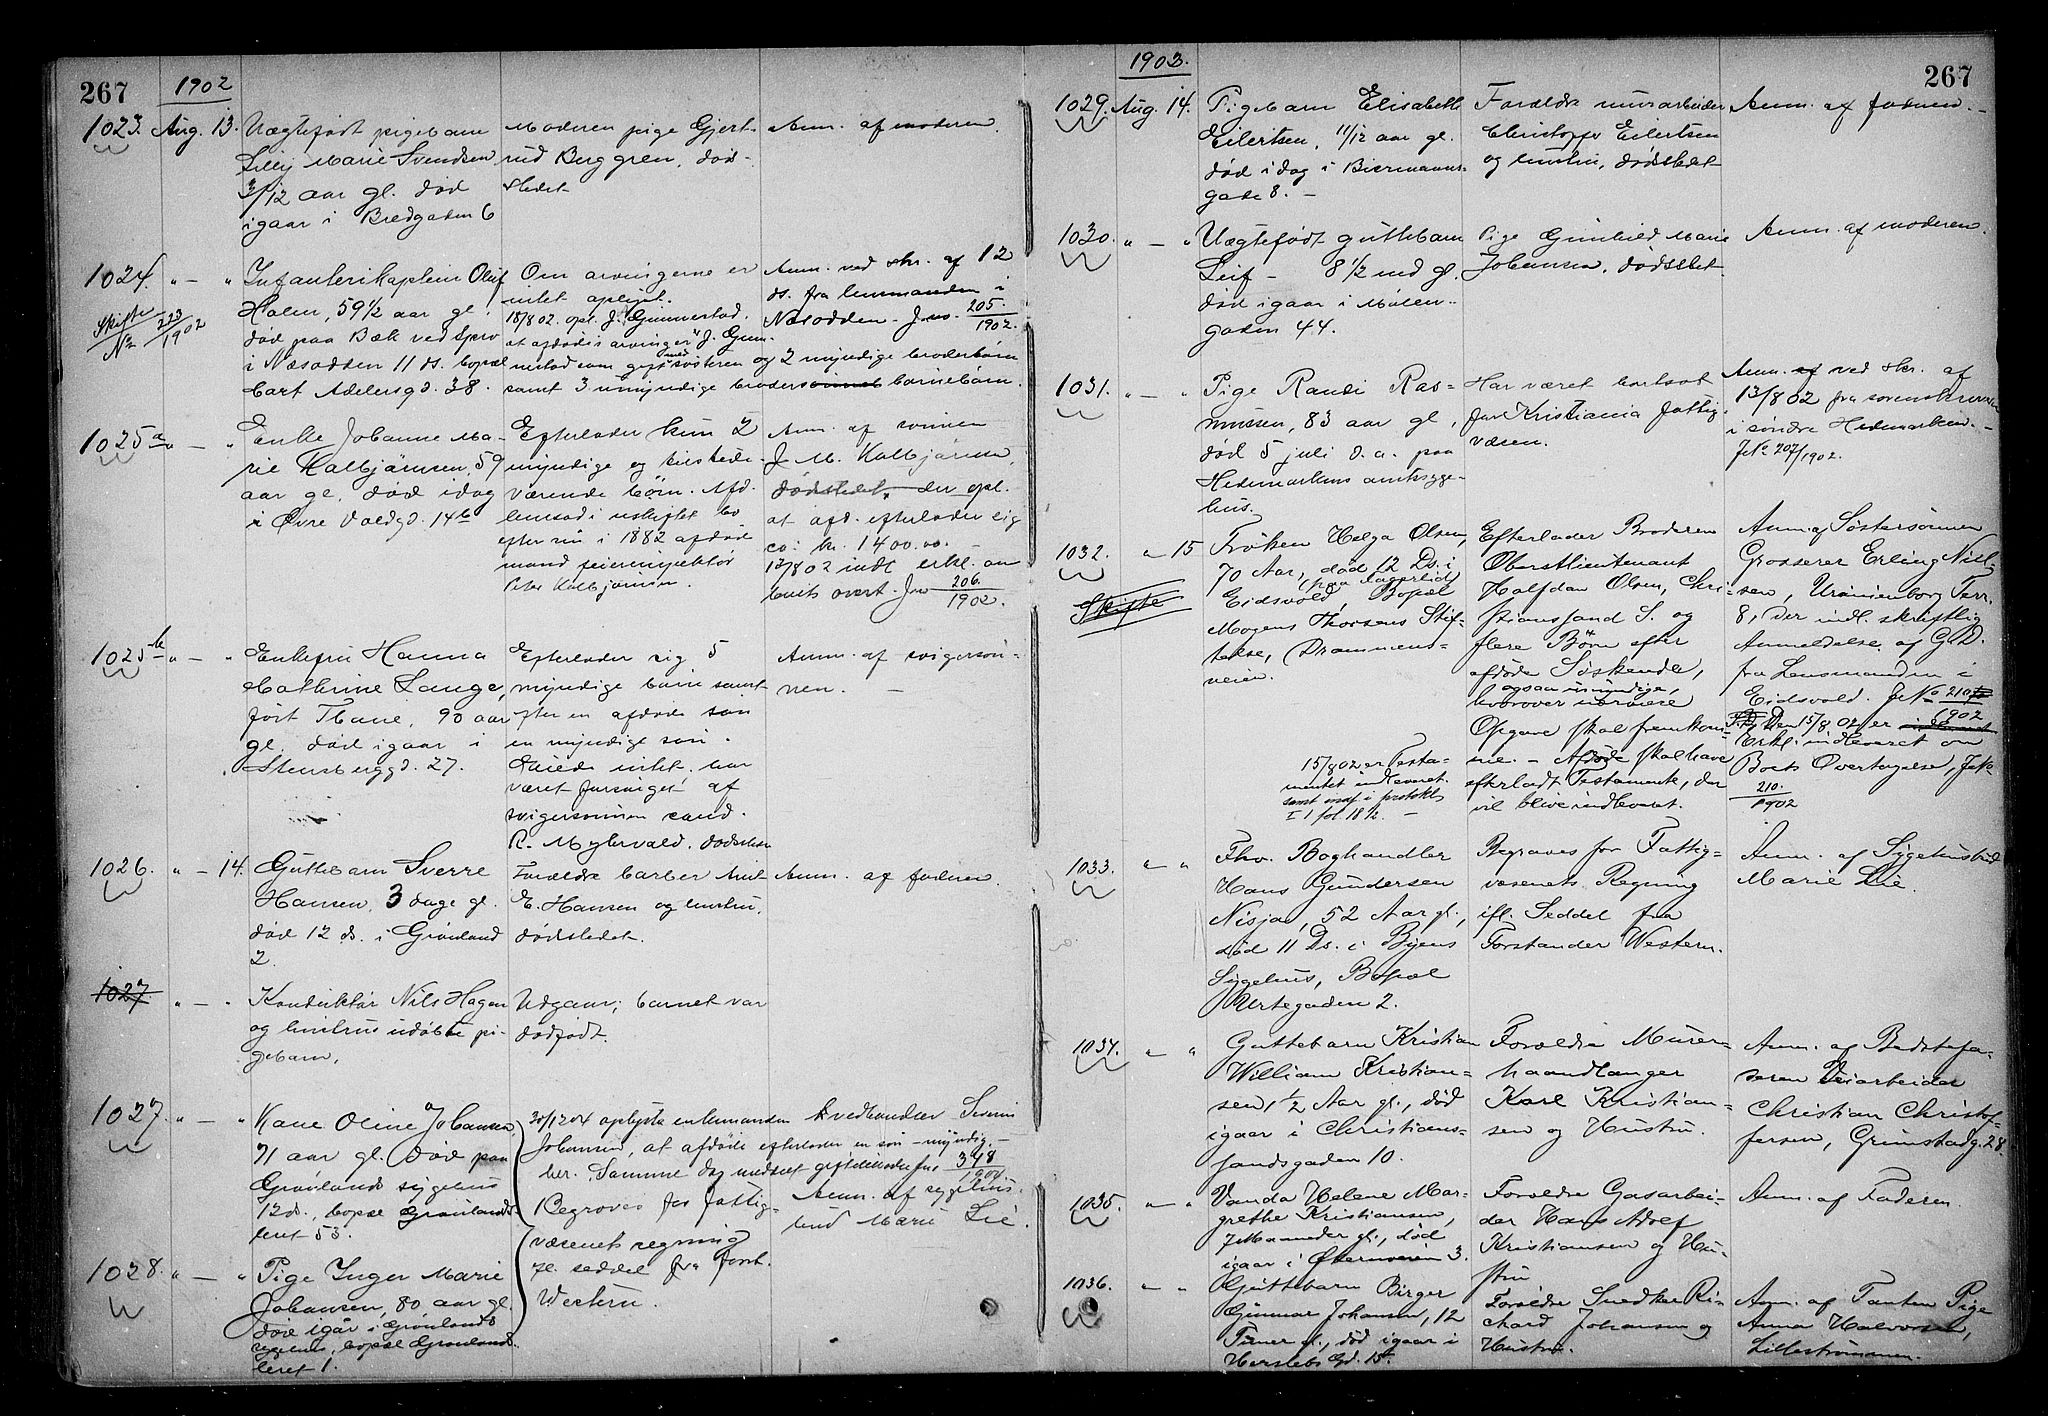 267
1902
1023. Aug. 13. Uægtefødt pigebarn
Lilly Marie Svendsen
3/12 aar gl. død
igaar i Bredgaden 6
Moderen pige Gjert-
rud Berggren, død-
stedet
Anm. af moderen.
1024. " — " Infanterikaptein Oluf
Holm, 59 1/2 aar gl.
død paa Bæk ved Spro
i Næsodden 11 ds. bopæl
Cort Adelersgd. 38.
Skifte
No 223/1902
Om arvingerne er
intet oplyst.
18/8 02. opl. J. Gunnestad.
at afdødes arvinger er J. Gun-
nestad som gift med søsteren og 2 myndige broderbørn
samt 3 umyndige broders barnebørn.
Anm. ved skr. af 12
ds. fra lensmanden i
Næsodden. J.no. 205/1902.
1025a " — " Enke Johanne Ma-
rie Kolbjørnsen, 59
aar gl. død idag
i Øvre Voldgd. 14b
Efterlader kun 2
myndige og tilstede-
værende børn. Afd.
hensad i uskiftet bo
efter sin i 1882 afdøde
mand feierinspektør
Peter Kolbjørnsen.
Anm. af sønnen
J. M. Kolbjørnsen,
dødstedet, der opl.
at afd. efterlader sig
ca: kr. 1400.00.
13/8 02 indl. erkl. om
boets overt. Jno 206./1902.
1025b " — " Enkefru Hanna
Cathrine Lange,
født Thane, 90 aar
gl. død igaar i
Stensberggd. 27.
Efterlader sig 5
myndige børn samt
efter en afdøde søn
en myndig søn.
Eiede intet, har
været forsørget af
svigersønnen cand.
R. Myhrvold, dødsstedet
Anm. af svigersøn-
nen. —
1026. " — 14. Guttebarn Sverre
Hansen, 3 dage gl.
død 12 ds. i Grønland
2.
Forældre barber Anit
E. Hansen og hustru,
dødstedet.
Anm. af faderen.
1027. " — " Konduktør Nils Hagen
og hustrus udøbte pi-
gebarn,
Udgaar; barnet var
dødfødt.
1027. " — " Kane Oline Johansen,
71 aar gl. død paa
Grønlands sygehus
12 ds., bopæl Grønlands-
leret 53.
30/12 04 oplyste enkemanden vedhandler Severin
Johansen, at afdøde efterlader en søn — myndig. —
her. Samme dag meddelt 348/1904
Begraves for fattig-
væsenets regning
Anm. af sygehus-
bud Marie Lie.
1028. " — " Pige Inger Marie
Johansen, 80 aar gl.
død igår i Grønlands
sygehus, bopæl Grønlands-
leret 1.
fl. seddel fra forst.
Western.
1903.
267
1029. Aug. 14. Pigebarn Elisabeth
Eilertsen, 11/12 aar gl.
død idag i Biermanns-
gade 8. —
Forældre murarbeider
Christopher Eilertsen
og hustru, dødsstedet
Anm. af faderen. —
1030. " — " Uægtefødt guttebarn
Leif — 8 1/2 md gl.
død igaar i Møllen-
gaden 44.
Pige Gunhild Marie
Johansen, dødsstedet.
Anm. af moderen.
1031. " — " Pige Randi Ras-
mussen, 83 aar gl.,
død 5 juli d.a. paa
Hedemarkens amtssyge-
hus.
Har været bortsat
for Kristiania fattig-
væsen.
Anm. ved skr. af
13/8 02 fra sorenskriveren
i søndre Hedemarken. —
J.No 207/1902.
1032. " 15 Frøken Helga Olsen,
70 Aar, død 12 Ds. i
Eidsvold, Bopæl
Mogens Thorsens Stif-
telse, Drammens-
veien.
Skifte
15/8 02 er Testa-
mentet indleveret
samt indf. i protokl
I 1 fol. 182. —
Efterlader Broderen
Oberstlieutenant
Halfdan Olsen, Chri-
stianssand S. og
flere Børn efter
afdøde Søskende,
ogsaa umyndige,
hvorover nærmere
Opgave skal fremkom-
me. — Afdøde skal have
efterladt Testamente, der
vil blive indleveret.
Anm. af Søstersønnen
Grosserer Erling Niel-
sen, Uranienborg Terr.
8, der indl. skriftlig
Anmeldelse af G.D.
fra Lensmanden i
Eidsvold. J.No 210/1902
Den 15/8 02 er
Erkl. indleveret om
Boets Overtagelse, J.No
210./1902
1033. " " Fhv. Boghandler
Hans Gundersen
Nisja, 52 Aar gl.,
død 11 Ds. i Byens
Sygehus, Bopæl
Urtegaden 2.
Begraves for Fattig-
væsenets Regning
ifl. Seddel fra
Forstander Western.
Anm. af Sygehusbud
Marie Lie.
1034. " — " Guttebarn Kristian
William Kristian-
sen 1 1/2 Aar gl., død
igaar i Christians-
sandsgaden 10.
Forældre Murer-
haandlanger
Karl Kristian-
sen og Hustru.
Anm. af Bedstefa-
deren Veiarbeider
Christian Christof-
fersen, Grimstadg. 28.
1035. " — " Vanda Helene Mar-
grethe Kristiansen,
7 Maaneder gl., død
igaar i Økernveien 3.
Forældre Gasarbei-
der Hans Adolf
Kristiansen og Hu-
stru
Anm. af Faderen.
1036. " — " Guttebarn Birger
Gunnar Johansen, 12
Timer gl., død igaar i
Herslebs Gd. 15.
Forældre Snedker Ri-
chard Johansen og
Hustru.
Anm. af Tanten Pige
Anna Halvorsen,
Lillestrømmen.